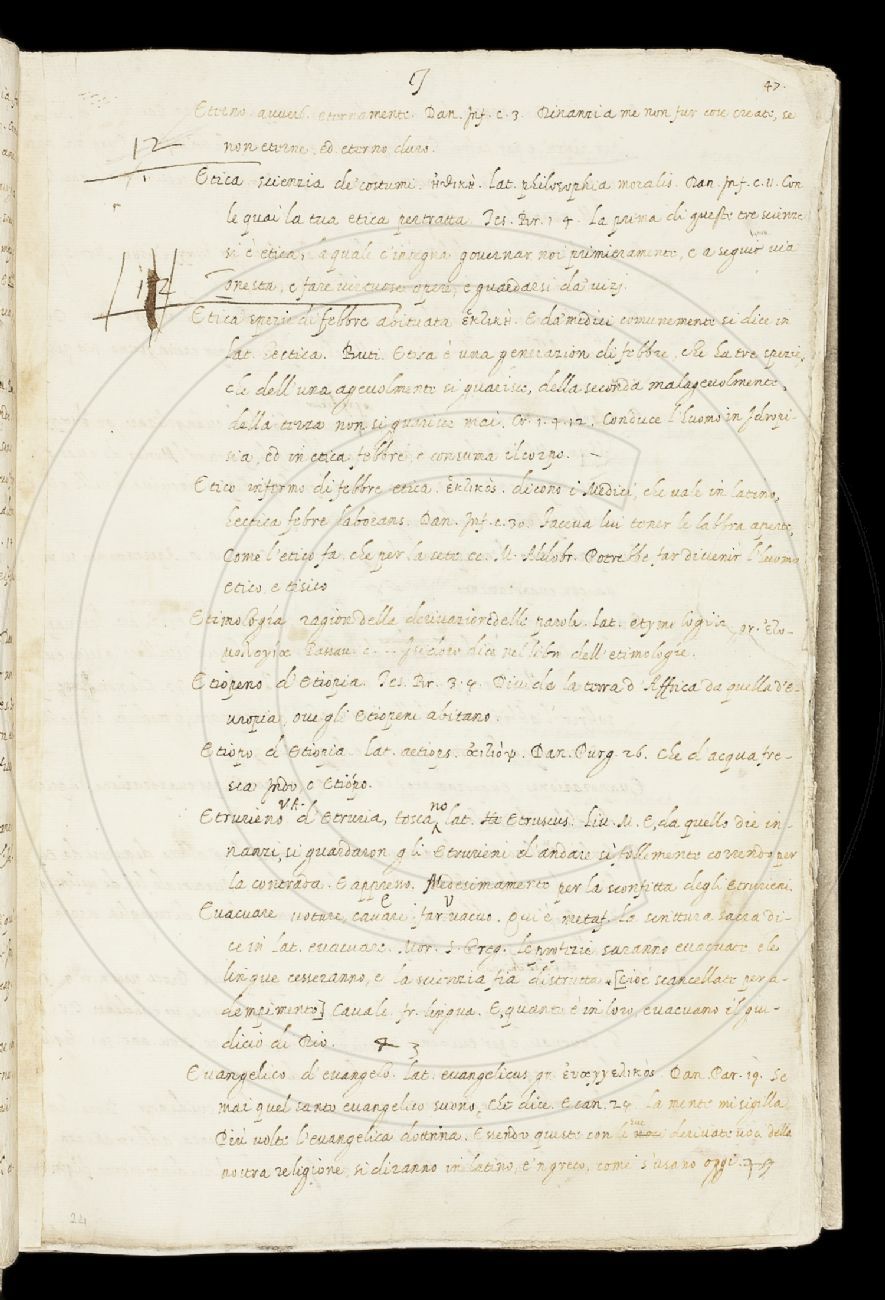 47.
Eterno avverb. eternamente. Dan. Inf. c. 3. Dinanzi a me non fur cose create, se
non eterne, ed eterno duro.
12
Etica scienzia de costumi. ἠθικὴ. lat. philosophia moralis. Dan. Inf. c. 11. Con
le quai la tua etica pertratta Tes. Br. 1. 4. la prima di queste tre scienze
si è etica, la quale c'insegna governar noi primieramente, e a seguir via
onesta, e fare virtuose opere, e guardarsi da vizj.
112
Etica spezie di febbre abituata ἑκτικὴ. E da medici comunemente si dice in
lat. hectica. Buti. Etica è una generazion di febbre, che ha tre spezie,
che dell'una agevolmente si guarisce, della seconda malagevolmente,
della terza non si guarisce mai. Cr. 1. 4. 12. Conduce l'huomo in Idropi-
sia, ed in etica febbre, e consuma il corpo.
Etico infermo di febbre etica. ἑκτικὸς. dicono i Medici, che vale in latino,
hectica febre laborans. Dan. Inf. c. 30. Faceva lui tener le labbra aperte,
Come l'etico fa, che per la sete ec. M. Aldobr. Potrebbe far divenir l'huomo
etico, e tisico
Etimologia ragion della derivazione delle parole. lat. etymologia, gr. ἐτυ-
μολογία Passav. c. Isidoro dice nel libro dell'etimologie.
Etiopeno d'Etiopia. Tes. Br. 3. 4. Divide la terra d'Affrica da quella d'E-
uropia, ove gli Etiopeni abitano.
Etiopo d'Etiopia. lat. aetiops. αἰθίοψ. Dan. Purg. 26. Che d'acqua fre-
sca Indo, o Etiopo.
Etrurieno VA. d'Etruria, toscano lat. Etruscus. Liv. M. E, da quello die in-
nanzi, si guardaron gli Etrurieni d'andare sì follemente correndo per
la contrada. E appresso. Medesimamente per la sconfitta degli Etrurieni.
Evacuare votare, cavare, e far vacuo. Qui è metaf. la scrittura sacra di-
ce in lat. evacuare. Mor. S. Greg. le profezie saranno evacuate e le
lingue cesseranno, e la scienzia fia distrutta [cioè scancellate per a-
dempimento] Caval. fr. lingua. E, quanto è in loro, evacuano il giu-
dicio di Dio.
Evangelico d'evangelo. lat. evangelicus, gr. ἐυαγγελικὸς. Dan. Par. 19. Se
mai quel santo evangelico suono, Che dice. E can. 24. la mente mi sigilla
Più volte l'evangelica dottrina. Essendo queste con le sue derivate voci della
nostra religione, si diranno in latino, e 'n greco, come s'usano oggi.
24